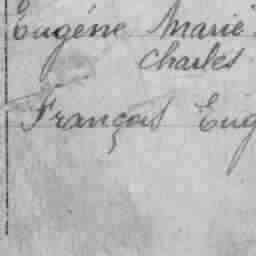 Eugène Marie
Charles
François Eug